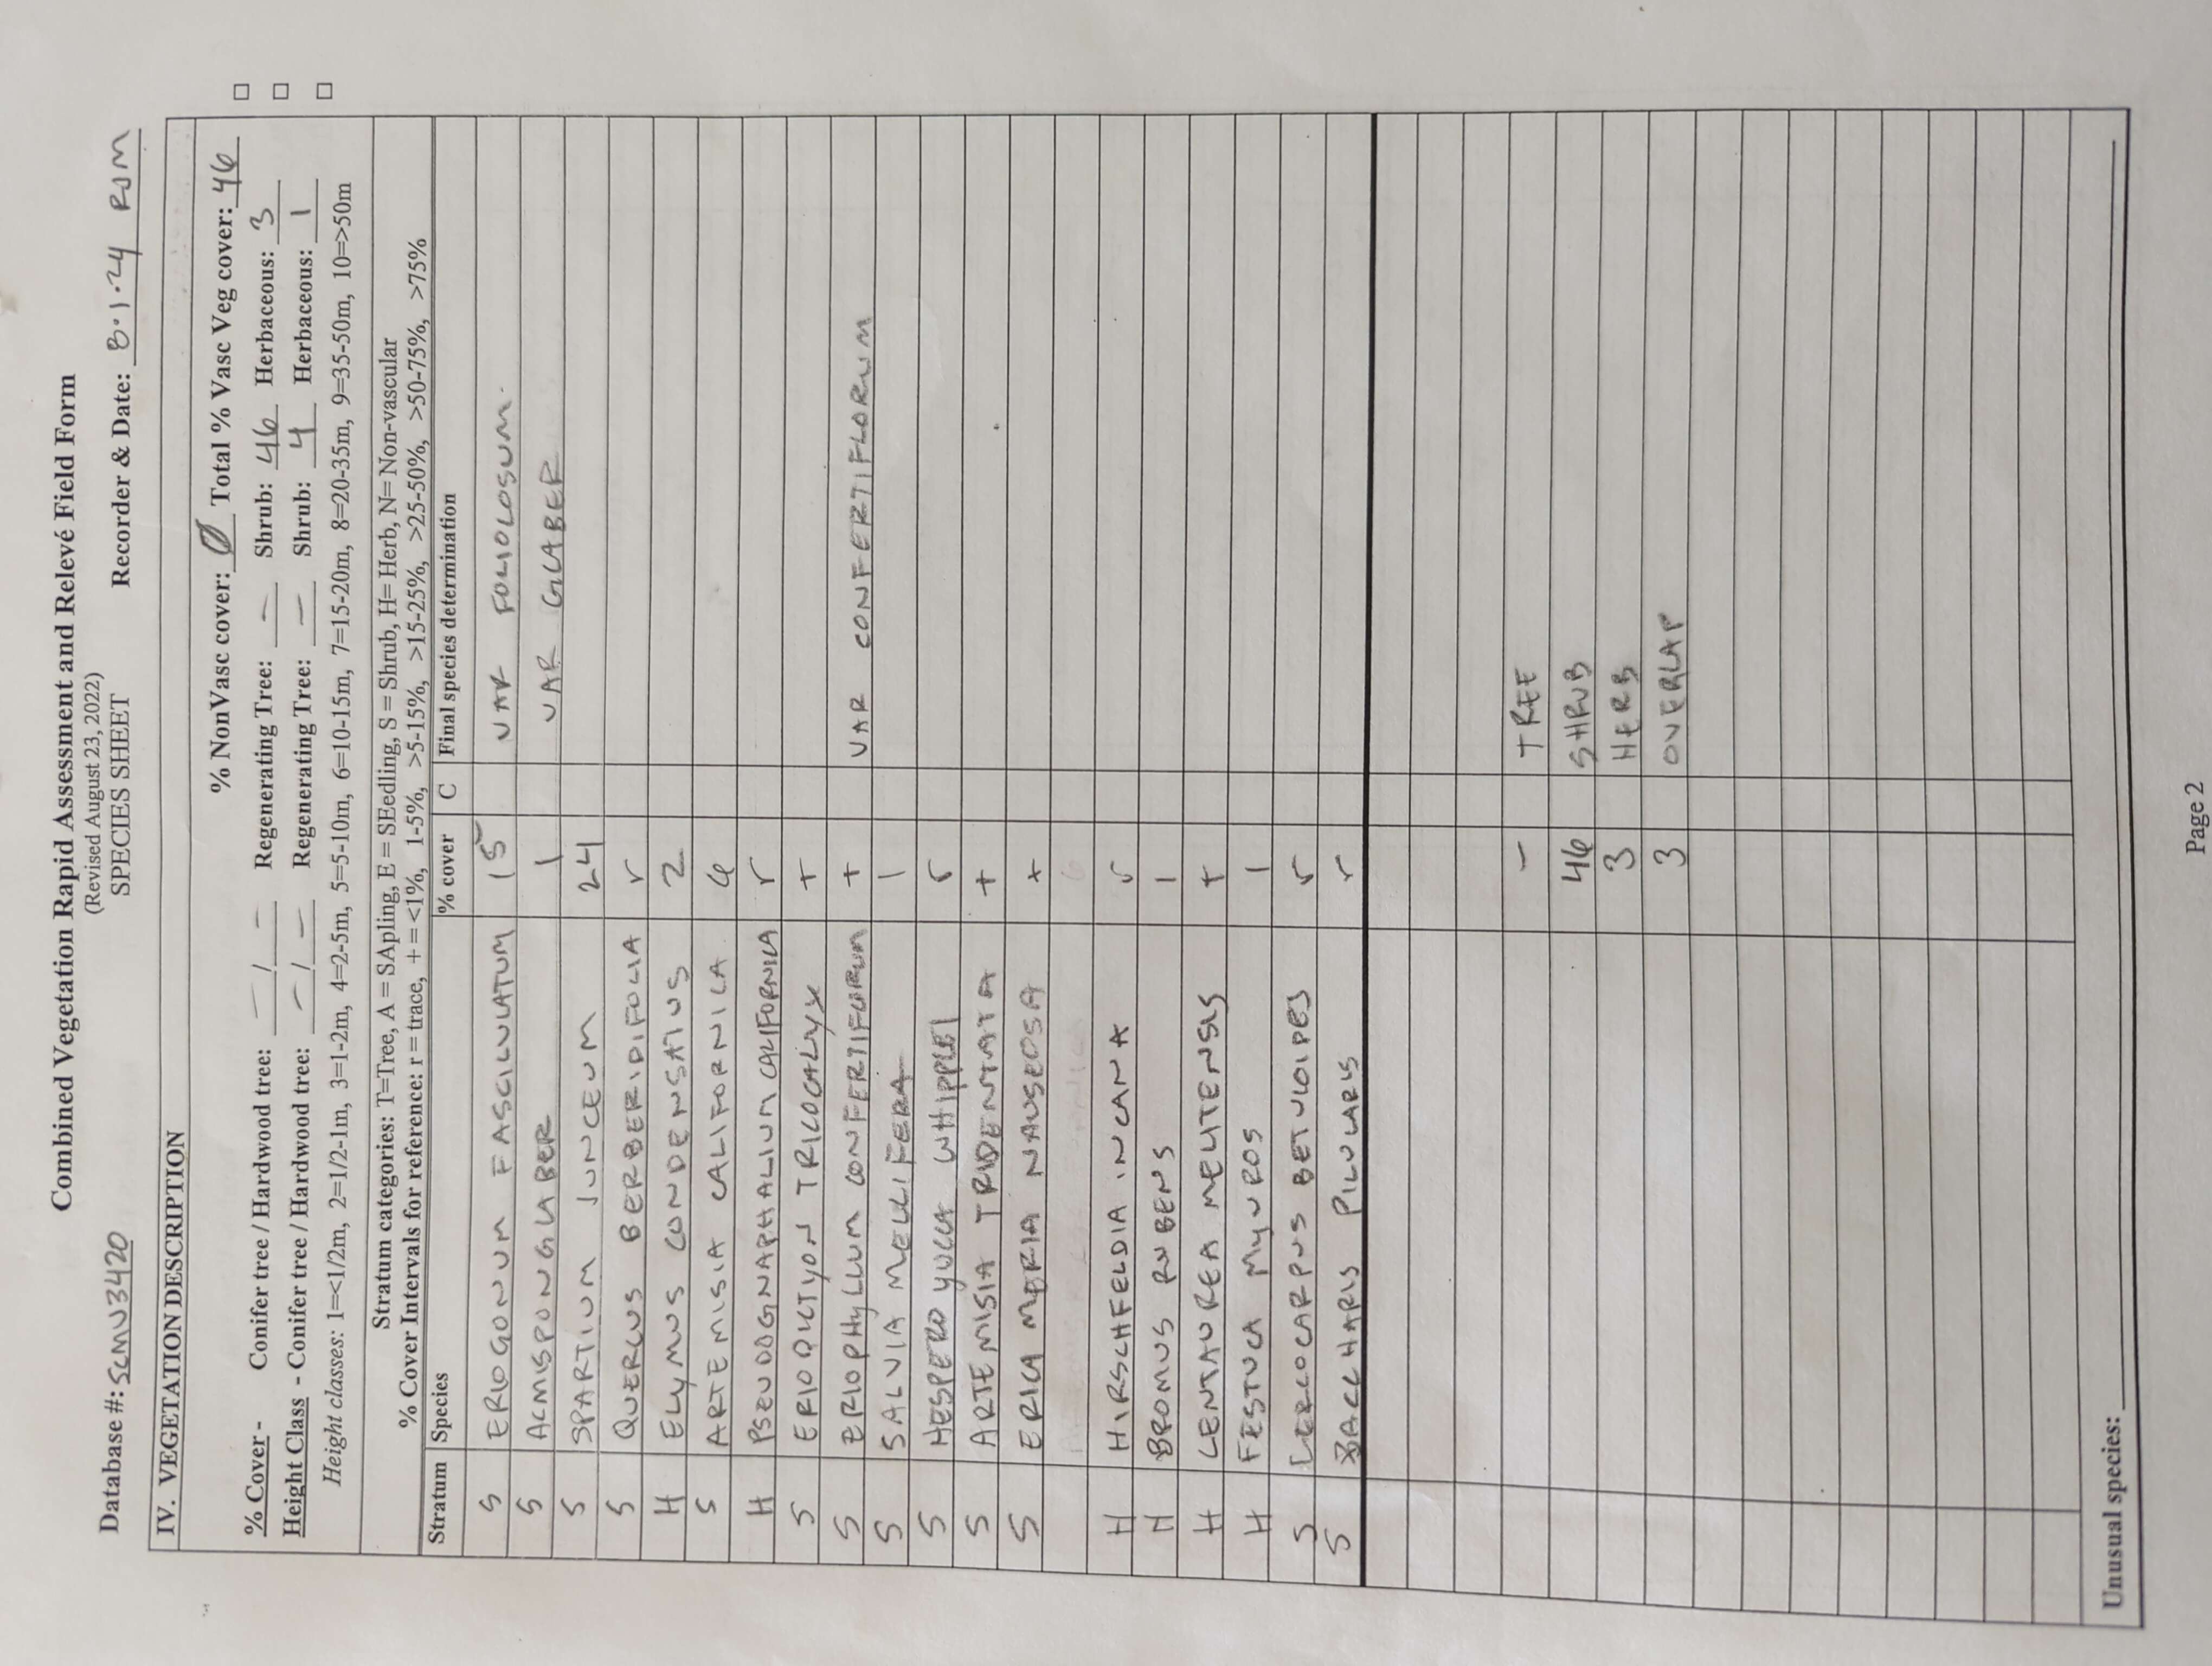 Combined Vegetation Rapid Assessment and Relevé Field Form
(Revised August 23, 2022)
SPECIES SHEET
Database #: SCMU3420 Recorder & Date: 8.1.24 RJM
IV. VEGETATION DESCRIPTION
% NonVasc cover: Ø Total % Vasc Veg cover: 46 □
% Cover - Conifer tree / Hardwood tree: — / — Regenerating Tree: — Shrub: 46 Herbaceous: 3 □
Height Class - Conifer tree / Hardwood tree: — / — Regenerating Tree: — Shrub: 4 Herbaceous: 1 □
Height classes: 1=<1/2m, 2=1/2-1m, 3=1-2m, 4=2-5m, 5=5-10m, 6=10-15m, 7=15-20m, 8=20-35m, 9=35-50m, 10=>50m
Stratum categories: T=Tree, A = SApling, E = SEedling, S = Shrub, H= Herb, N= Non-vascular
% Cover Intervals for reference: r = trace, + = <1%, 1-5%, >5-15%, >15-25%, >25-50%, >50-75%, >75%
Stratum Species % cover C Final species determination
S ERIOGONUM FASCICULATUM 15 VAR FOLIOLOSUM
S ACMISPON GLABER 1 VAR GLABER
S SPARTIUM JUNCEUM 24
S QUERCUS BERBERIDIFOLIA r
H ELYMUS CONDENSATUS 2
S ARTEMISIA CALIFORNICA 4
H PSEUDOGNAPHALIUM CALIFORNICA r
S ERIODICTYON TRICOCALYX +
S ERIOPHYLLUM CONFERTIFLORUM + VAR CONFERTIFLORUM
S SALVIA MELLIFERA 1
S HESPEROYUCCA WHIPPLEI r
S ARTEMISIA TRIDENTATA +
S ERICAMERIA NAUSEOSA +
H HIRSCHFELDIA INCANA r
H BROMUS RUBENS 1
H CENTAUREA MELITENSIS +
H FESTUCA MYUROS 1
S CERCOCARPUS BETULOIPES r
S BACCHARIS PILULARIS r
— TREE
46 SHRUB
3 HERB
3 OVERLAP
Unusual species:
Page 2